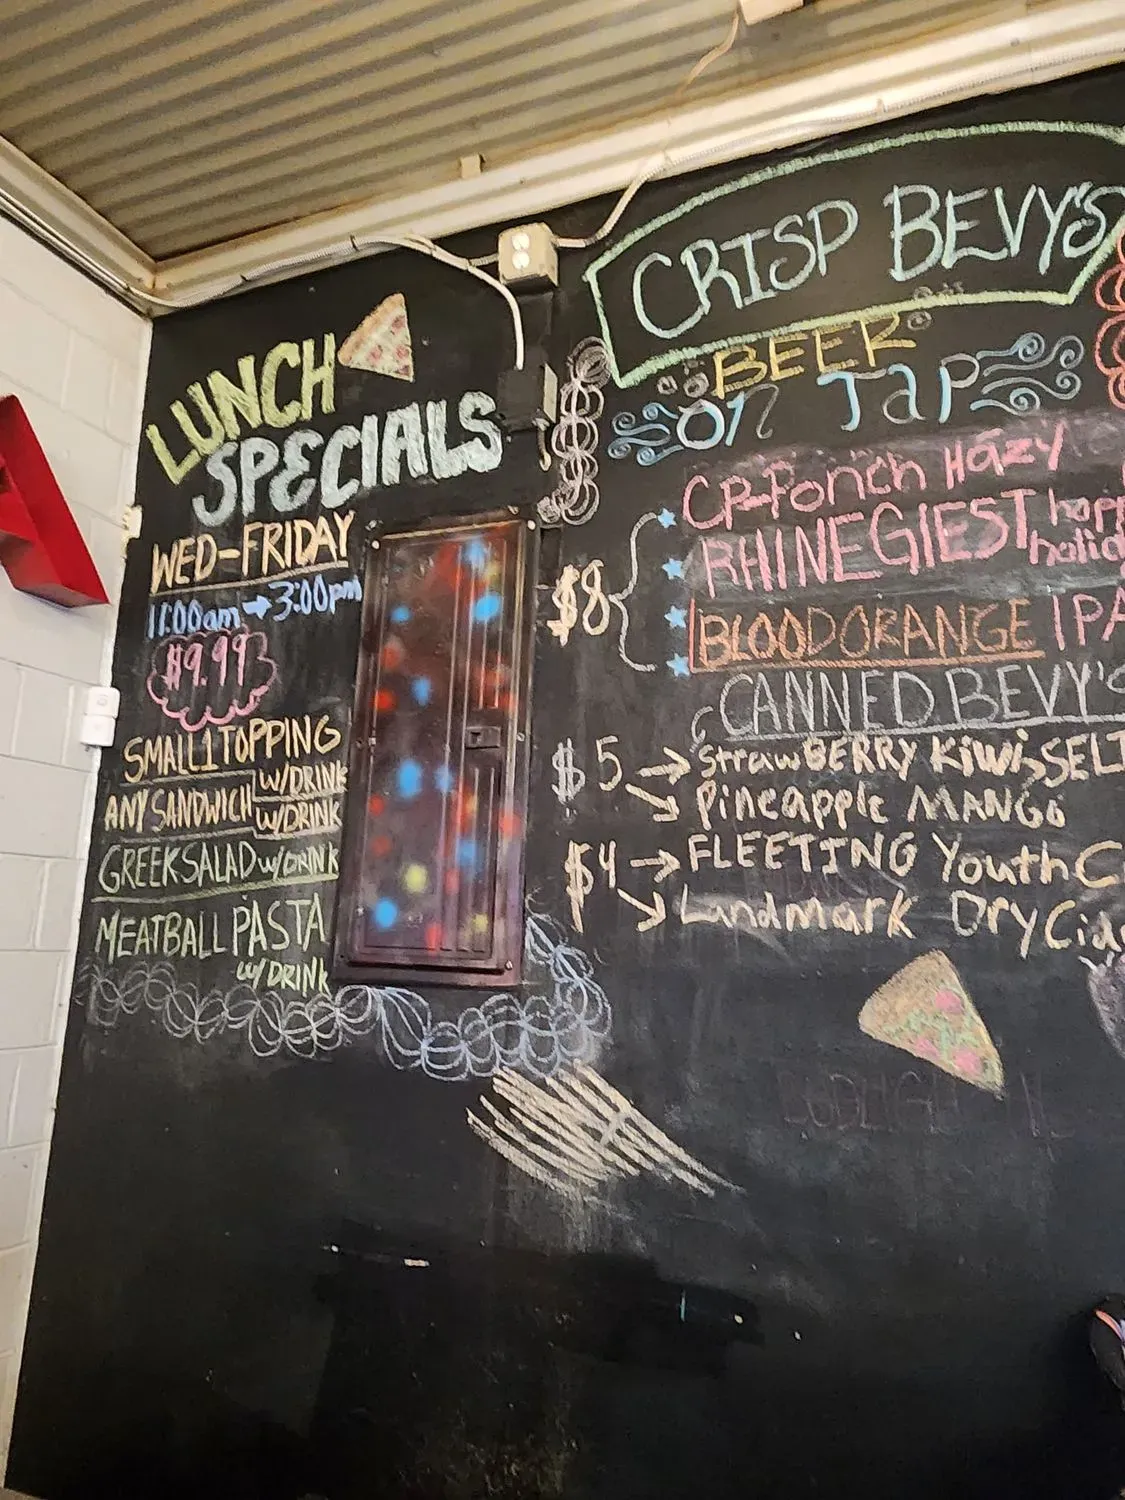 LUNCH
SPECIALS
WED-FRIDAY
11:00am → 3:00pm
$9.99
SMALL 1 TOPPING
W/DRINK
ANY SANDWICH
W/DRINK
GREEK SALAD W/DRINK
MEATBALL PASTA
W/ DRINK
CRISP BEVY'S
BEER
ON TAP
CP-Ponch Hazy
RHINEGIEST
$8
BLOOD ORANGE IPA
CANNED BEVY'S
$5 → StrawBERRY Kiwi SELT
Pineapple MANGO
$4 → FLEETING Youth
Landmark Dry